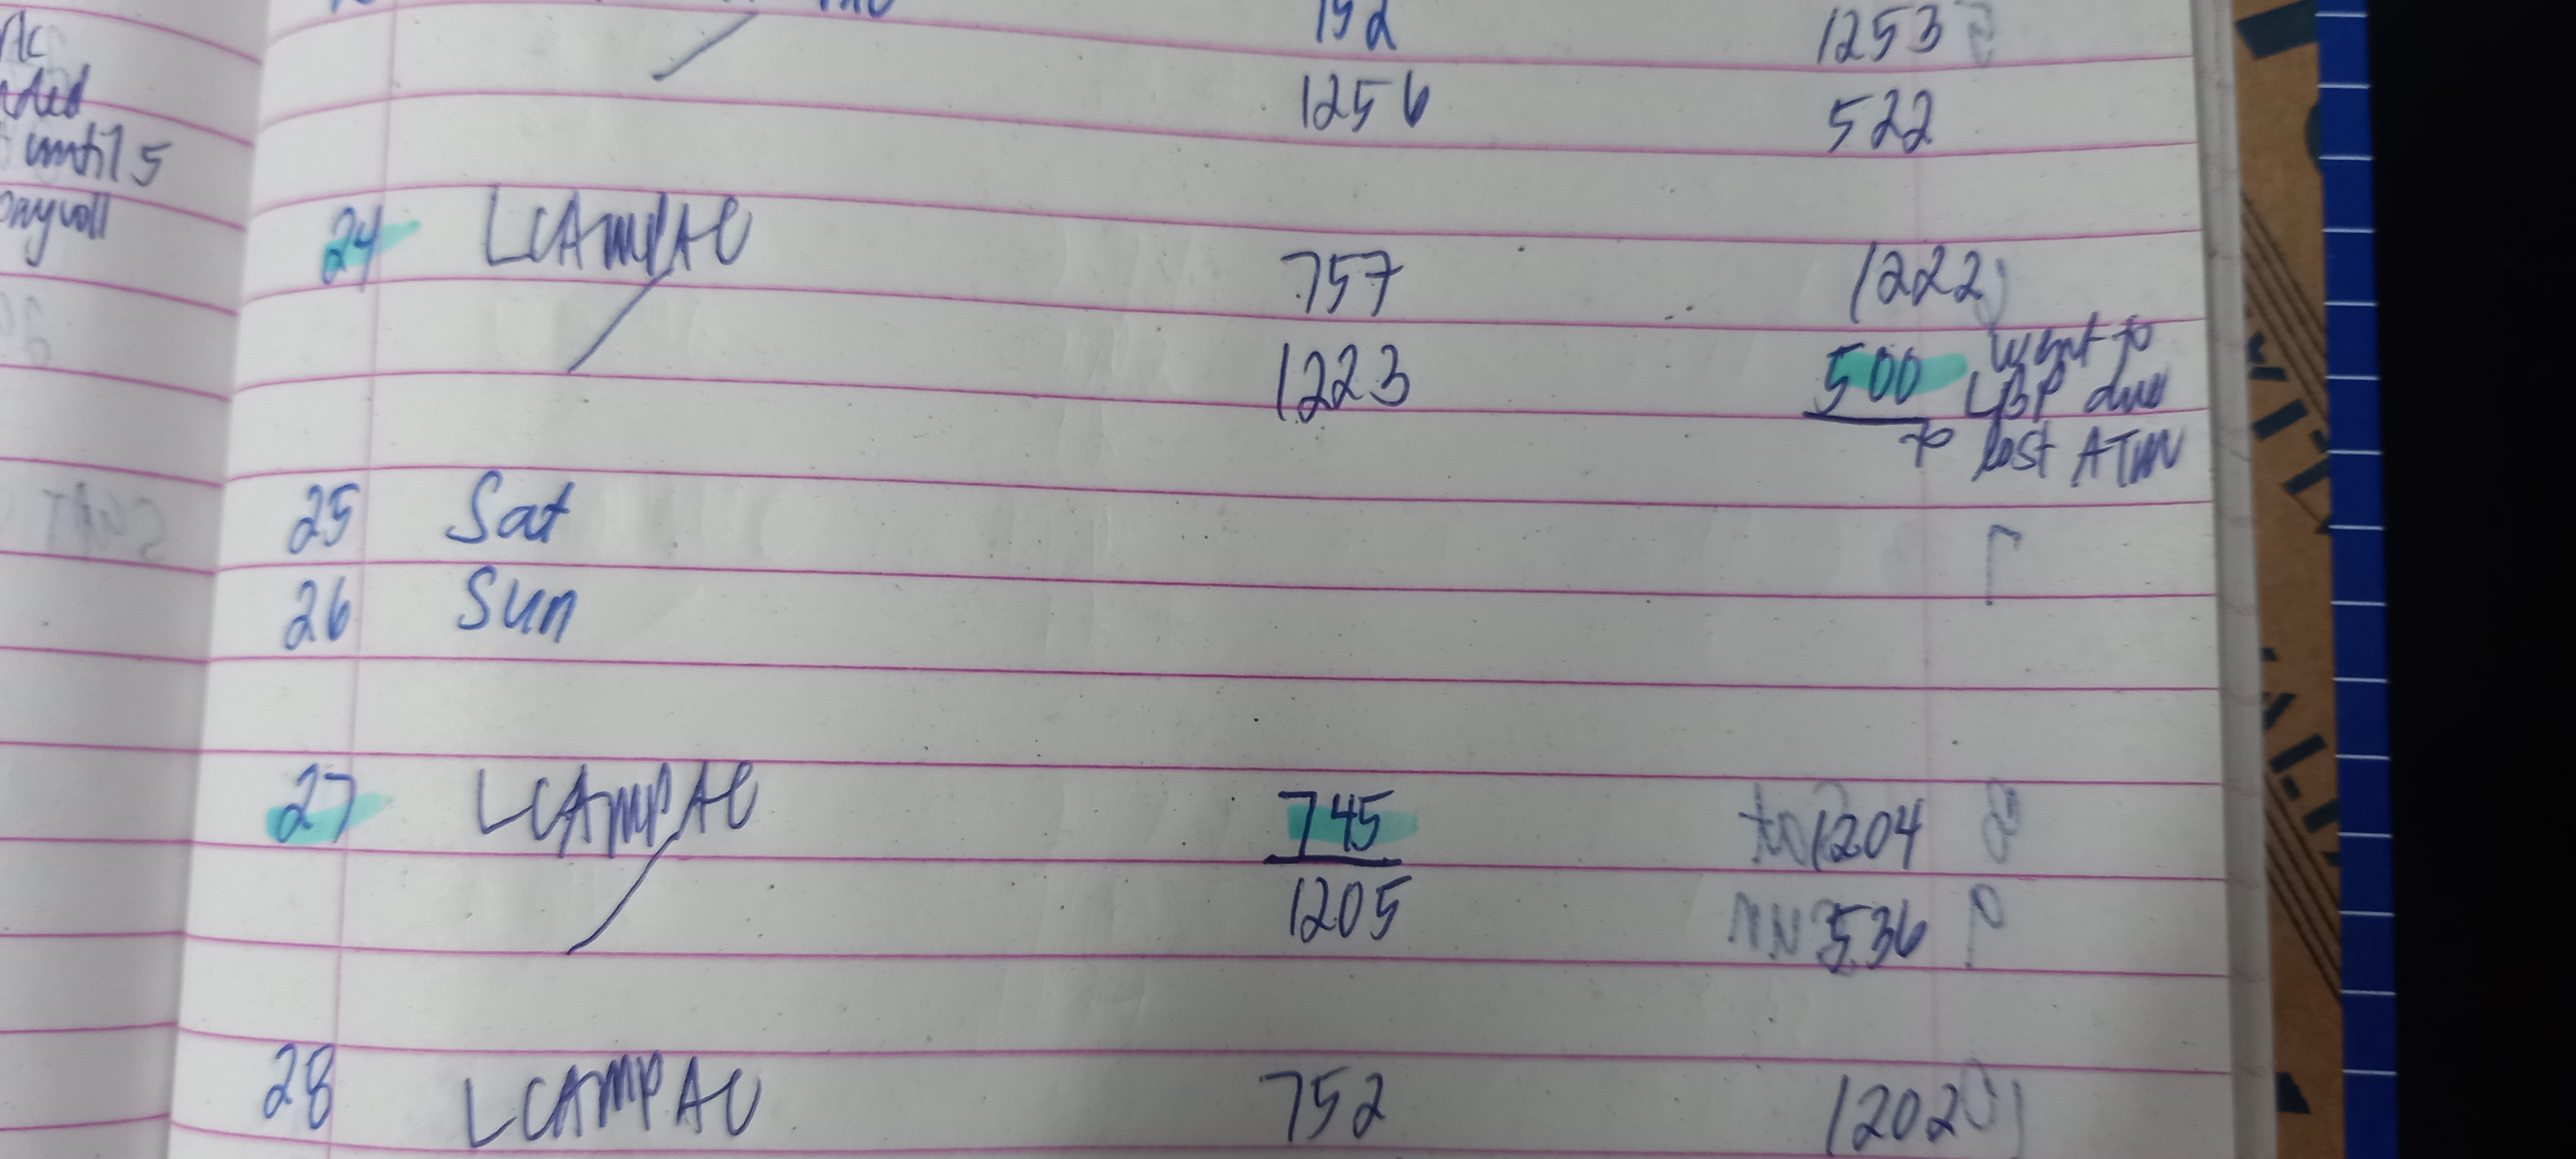 until 5
payroll
152 1253
1256 522
24 LCAMPAC 757 1222
1223 500 went to
LBP due
to lost ATM
25 Sat
26 Sun
27 LCAMPAC 745 1204
1205 536
28 LCAMPAC 752 1202